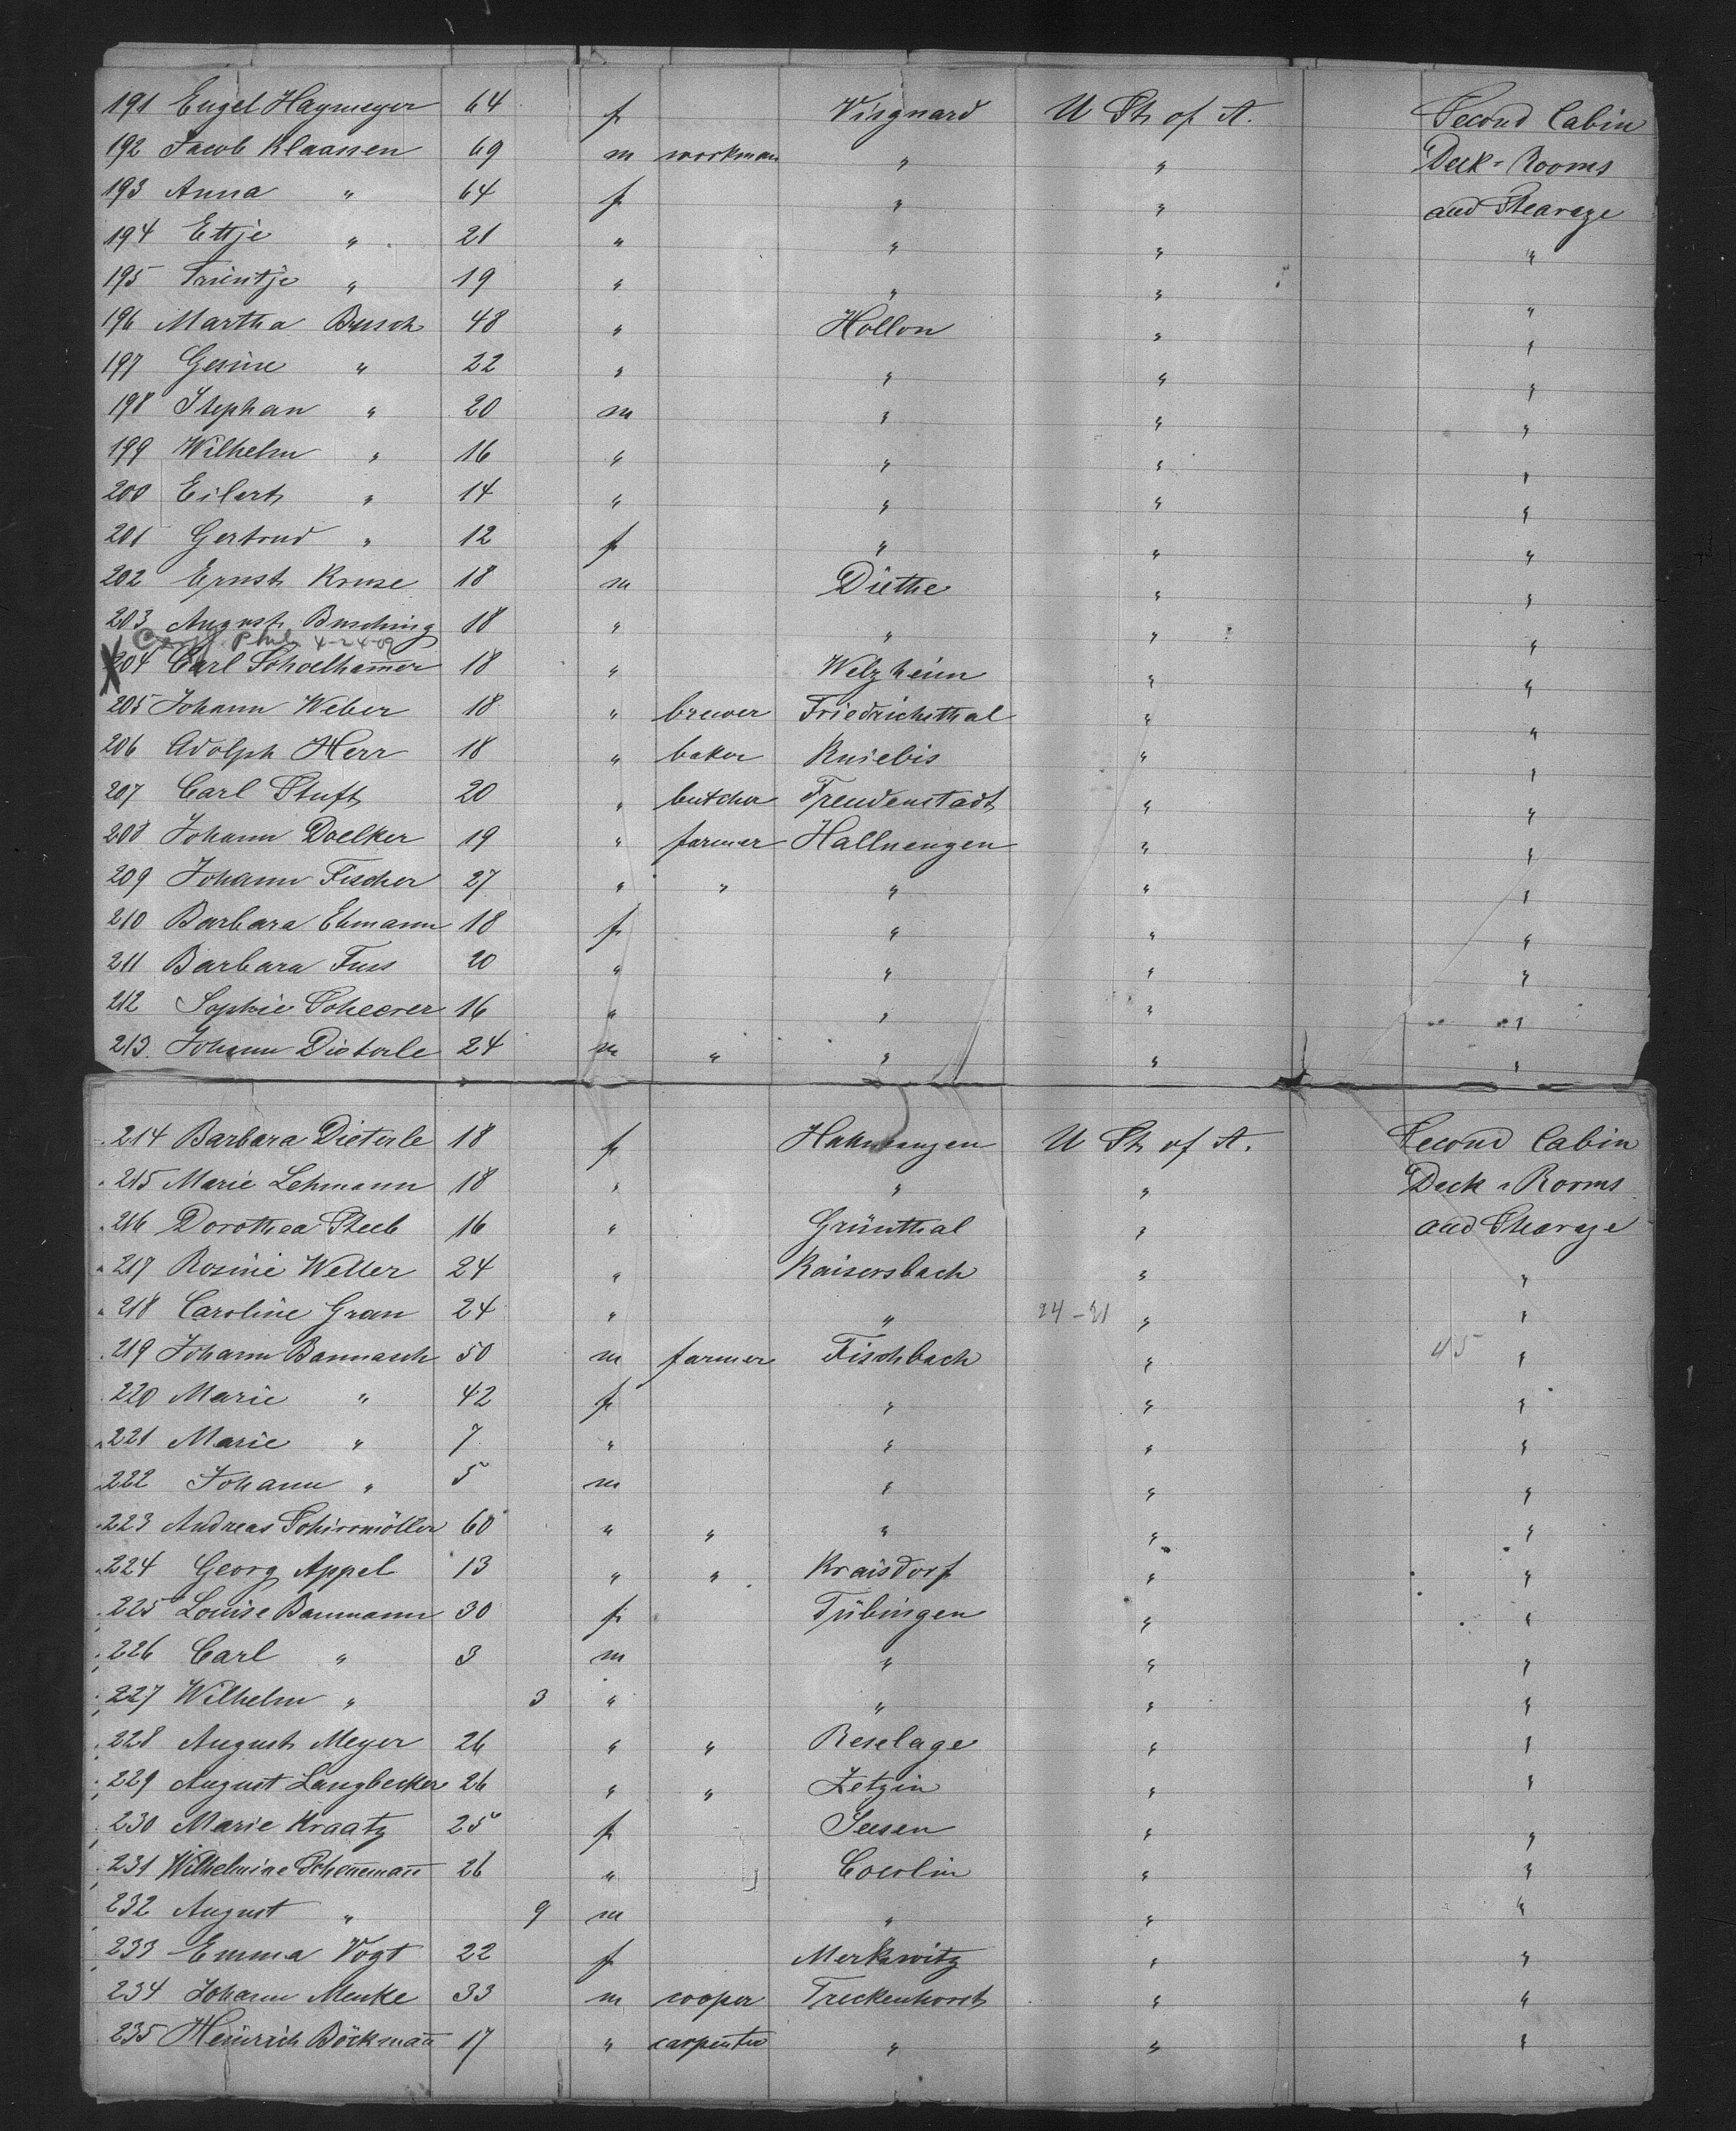 191 Engel Haymeyer 64 f Visgnard U St. of A. Second Cabin
192 Jacob Klaassen 69 m workman " " Deck-Rooms
193 Anna " 64 f " " and Stearage
194 Ettje " 21 " " " "
195 Trientje " 19 " " " "
196 Martha Busch 48 " Hollon " "
197 Gesine " 22 " " " "
198 Stephan " 20 m " " "
199 Wilhelm " 16 " " " "
200 Eilert " 14 " " " "
201 Gertrud " 12 f " " "
202 Ernst Kruse 18 m Diethe " "
203 August Busching 18 " " " "
4-24-09
X 204 Carl Schoelhammer 18 " Welzheim " "
205 Johann Weber 18 " brewer Friedrichsthal " "
206 Adolph Herr 18 " baker Kniebis " "
207 Carl Stuft 20 " butcher Freudenstadt " "
208 Johann Doelker 19 " farmer Hallwangen " "
209 Johann Fischer 27 " " " " "
210 Barbara Ehmann 18 f " " "
211 Barbara Fuss 20 " " " "
212 Sophie Scheerer 16 " " " "
213. Johann Dieterle 24 m " " " "
214 Barbara Dieterle 18 f Hallwangen U St. of A. Second Cabin
215 Marie Lehmann 18 " " " Deck-Rooms
216 Dorothea Steeb 16 " Grünthal " and Stearage
217 Rosine Weller 24 " Kaisersbach " "
218 Caroline Grau 24 " " 24-21 " "
219 Johann Bannasch 50 m farmer Fischbach " 45 "
220 Marie " 42 f " " "
221 Marie " 7 " " " "
222 Johann " 5 m " " "
223 Andreas Schirrmöller 60 " " " " "
224 Georg Appel 13 " " Kraisdorf " "
225 Louise Baumann 30 f Tübingen " "
226 Carl " 3 m " " "
227 Wilhelm " 3 " " " "
228 August Meyer 26 " " Reselage " "
229 August Langbecker 26 " " Zetzin " "
230 Marie Kraatz 25 f Seesen " "
231 Wilhelmine Schönemañ 26 " Coerlin " "
232 August " 9 m " " "
233 Emma Vogt 22 f Merkwitz " "
234 Johann Menke 33 m cooper Freckenhorst " "
235 Heinrich Böckmañ 17 " carpenter " " "